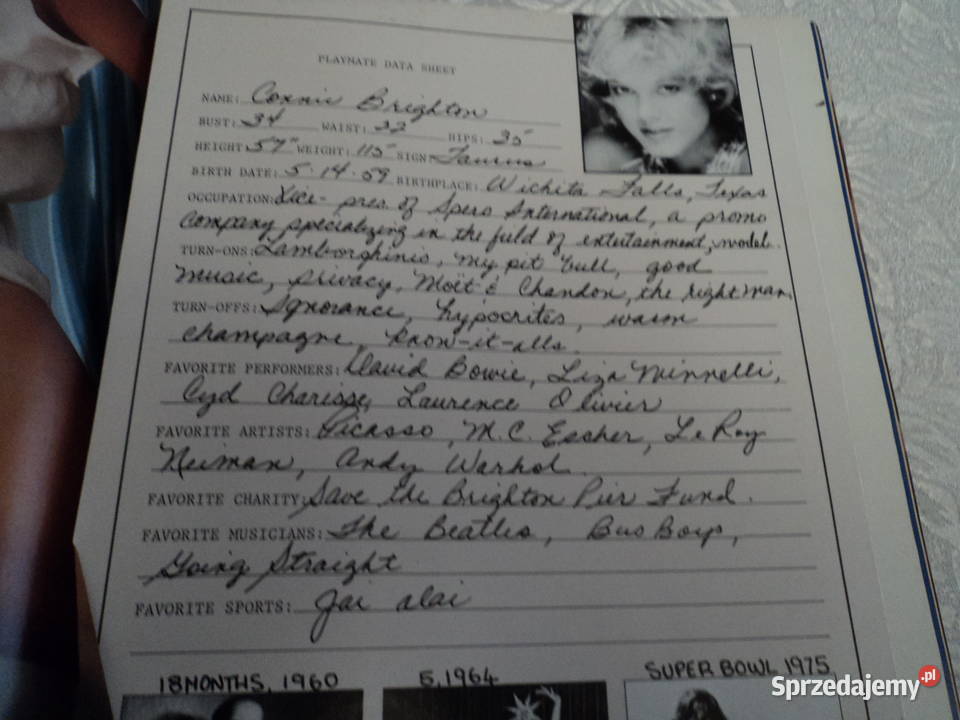 PLAYMATE DATA SHEET
NAME: Connie Brighton
BUST: 34 WAIST: 22 HIPS: 35
HEIGHT: 5'7" WEIGHT: 115 SIGN: Taurus
BIRTH DATE: 5-14-59 BIRTHPLACE: Wichita Falls, Texas
OCCUPATION: Vice-pres. of Spero International, a promo
company specializing in the field of entertainment; model.
TURN-ONS: Lamborghinis, my pit bull, good
music, privacy, Moët & Chandon, the right man.
TURN-OFFS: Ignorance, hypocrites, warm
champagne, know-it-alls.
FAVORITE PERFORMERS: David Bowie, Liza Minnelli,
Cyd Charisse, Laurence Olivier
FAVORITE ARTISTS: Picasso, M.C. Escher, LeRoy
Neiman, Andy Warhol.
FAVORITE CHARITY: Save the Brighton Pier Fund.
FAVORITE MUSICIANS: The Beatles, Bus Boys,
Going Straight
FAVORITE SPORTS: Jai alai
18 MONTHS, 1960 5, 1964 SUPER BOWL 1975
Sprzedajemy.pl